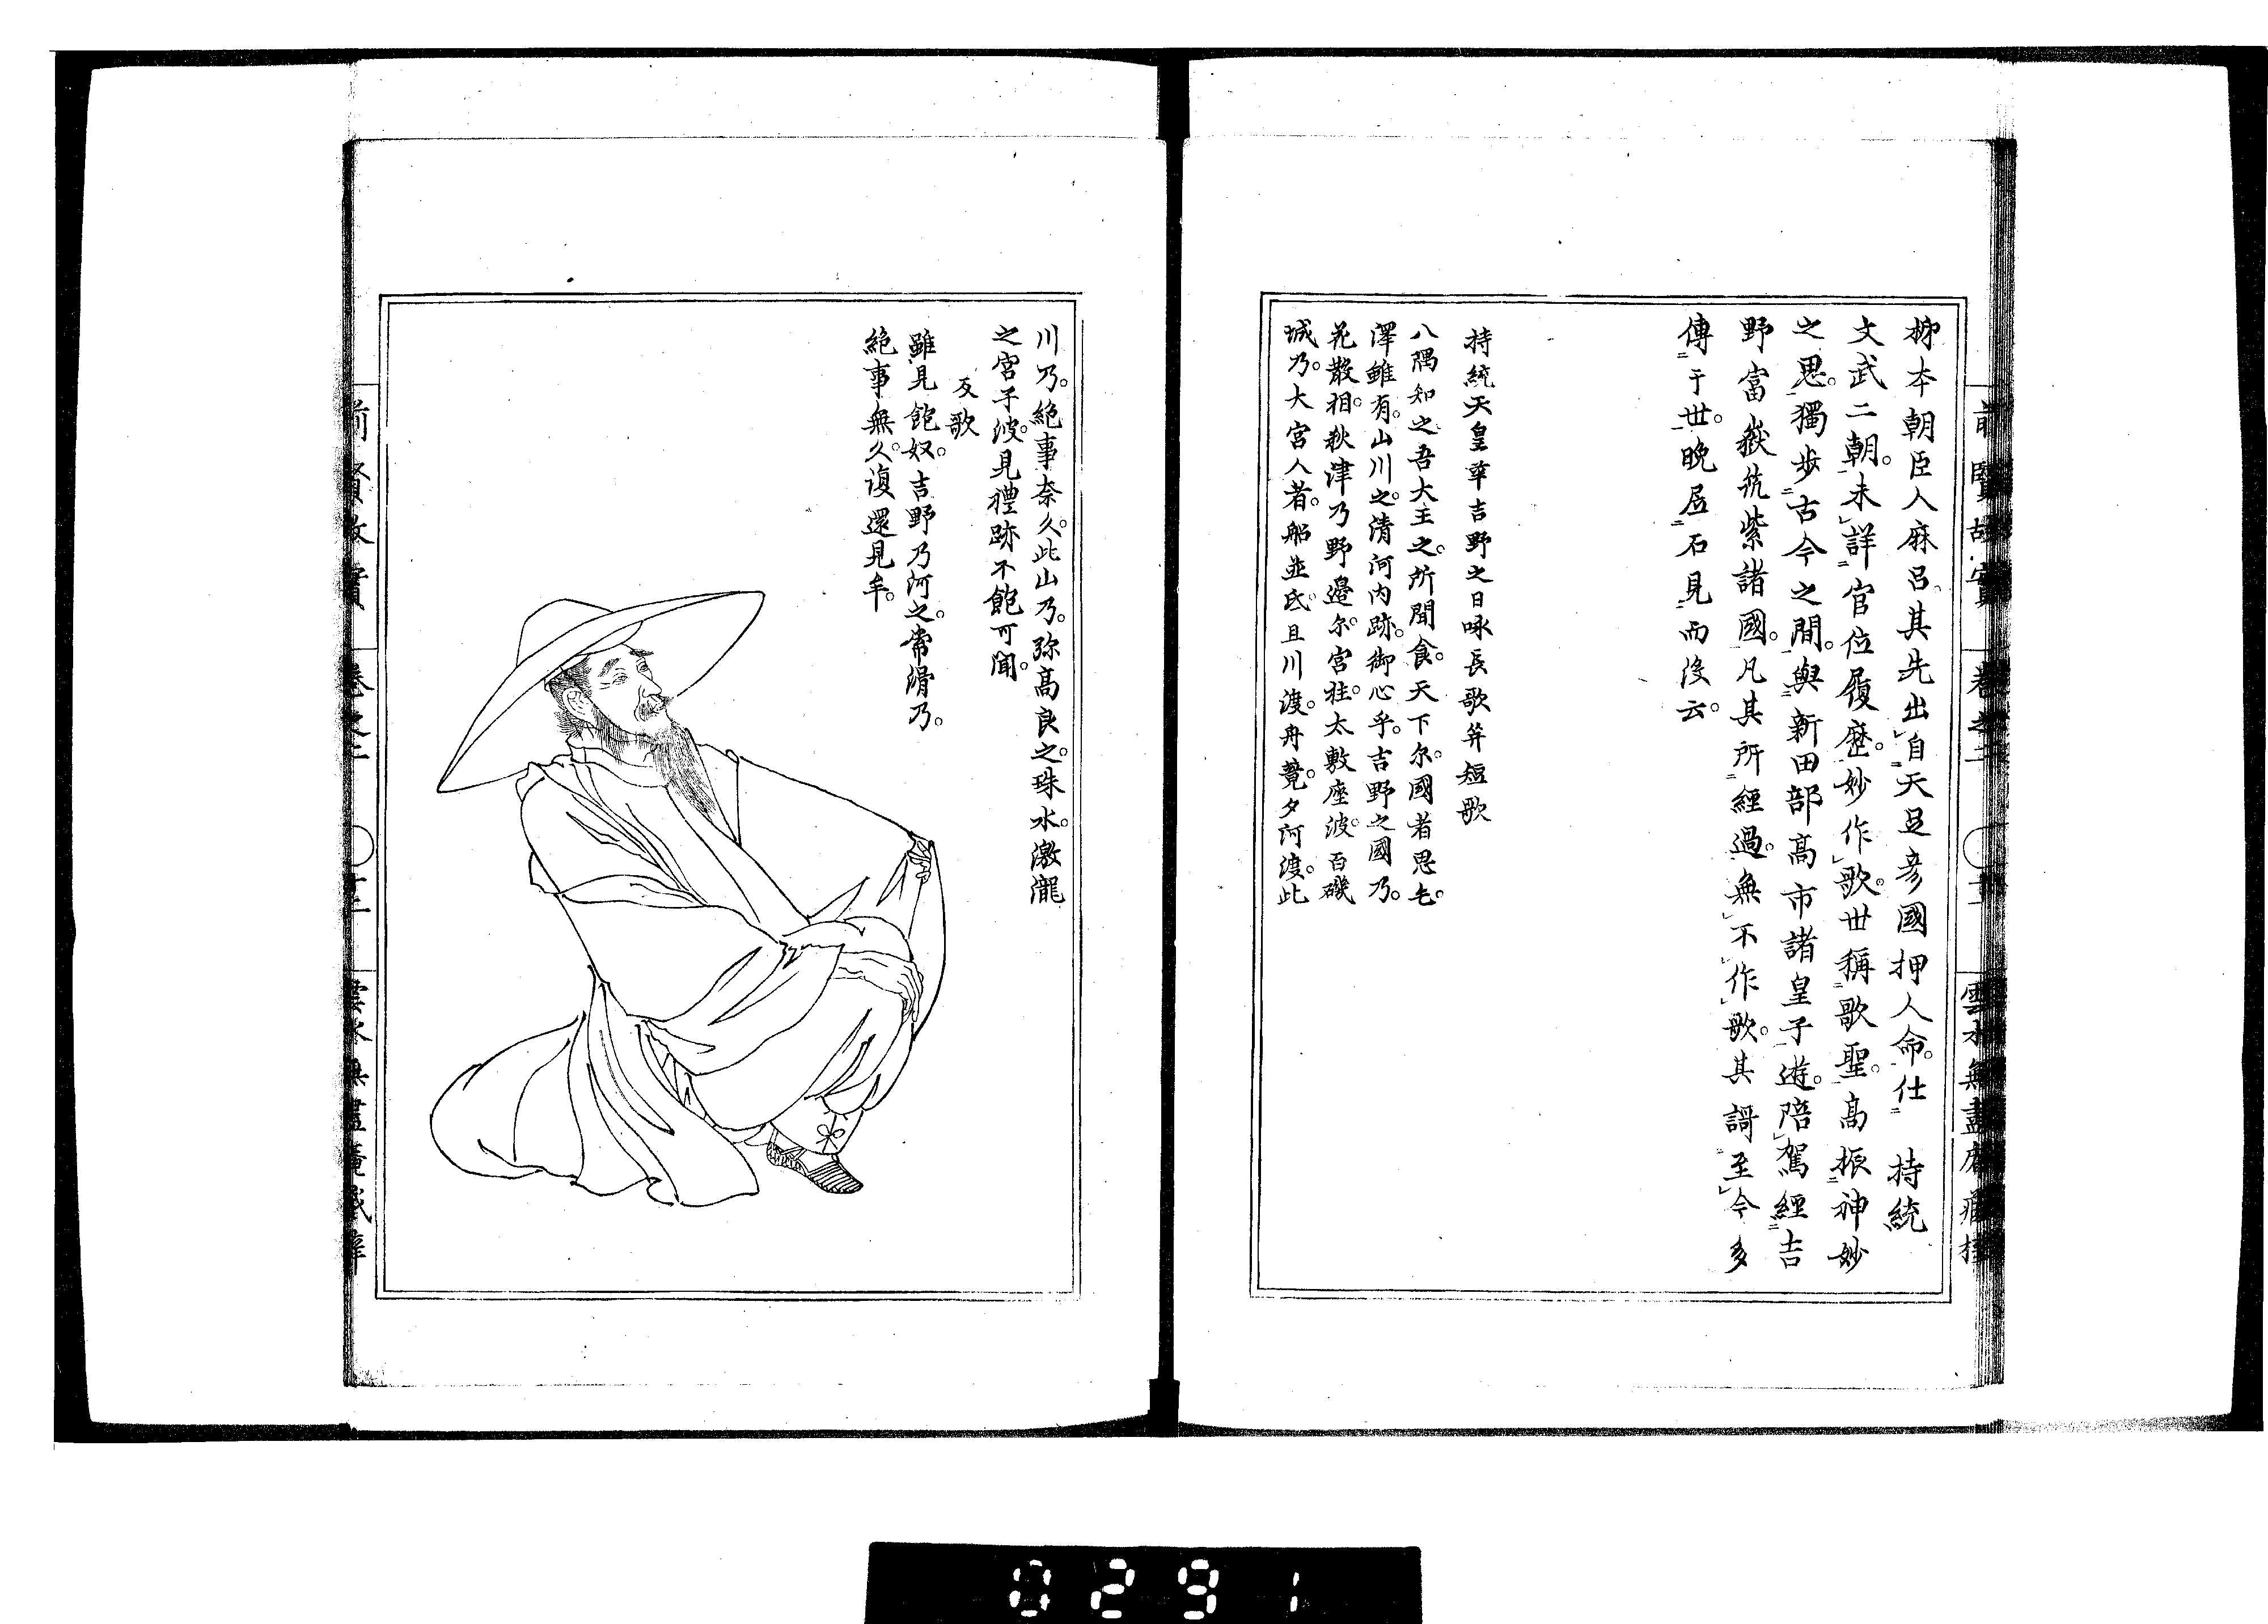 柳本朝臣人麻呂。其先出自天足彦國押人命。仕 持統
文武二朝。未詳官位履歴。妙作歌。世稱歌聖。高振神妙
之思。獨步古今之間。與新田部高市諸皇子遊。陪駕經吉
野富嶽筑紫諸國。凡其所經過。無不作歌。其謌至今多
傳于世。晚居石見而没云。
持統天皇幸吉野之日咏長歌并短歌
八隅知之吾大主之。所聞食。天下尓。國者思毛。
澤雖有。山川之。清河内跡。御心乎。吉野之國乃。
花散相。秋津乃野邊尓。宮柱。太敷座波。百磯
城乃。大宮人者。船並氐。且川渡。舟競。夕河渡。此
川乃。絶事奈久。此山乃。弥高良之。珠水。激瀧
之宮子波。見禮跡不飽可聞。
反歌
雖見飽奴。吉野乃河之。常滑乃。
絶事無久。復還見牟。
前賢故實 卷之二
前賢故實 卷之二
0291